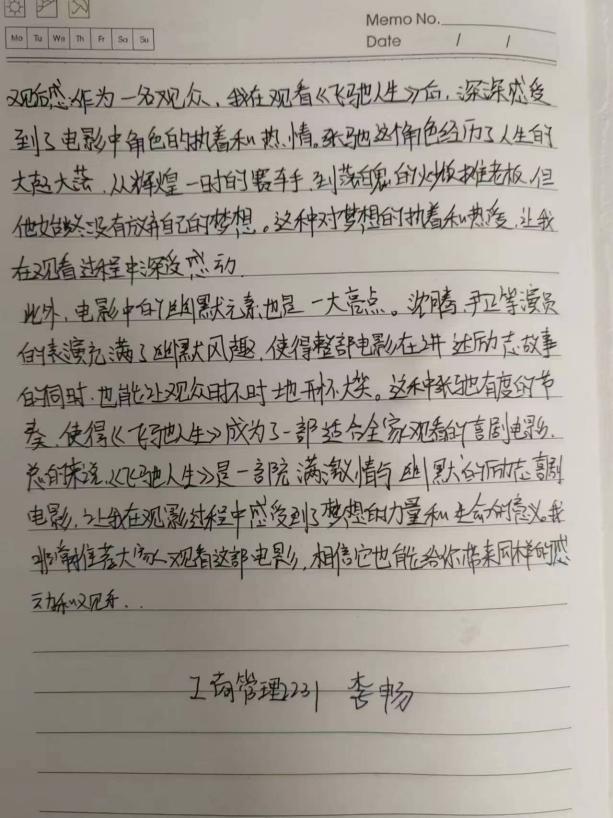 Memo No.
Mo Tu We Th Fr Sa Su
Date / /
观后感:作为一名观众,我在观看《飞驰人生》后,深深感受
到了电影中角色的执着和热情。张驰这个角色经历了人生的
大起大落,从辉煌一时的赛车手,到落魄的炒饭摊老板,但
他始终没有放弃自己的梦想。这种对梦想的执着和热爱,让我
在观看过程中深受感动.
此外,电影中的幽默元素也是一大亮点。沈腾,尹正等演员
的表演充满了幽默风趣,使得整部电影在讲述励志故事
的同时,也能让观众时不时地开怀大笑。这种张弛有度的节
奏,使得《飞驰人生》成为了一部适合全家观看的喜剧电影.
总的来说,《飞驰人生》是一部充满激情与幽默的励志喜剧
电影,让我在观影过程中感受到了梦想的力量和生命的意义。我
非常推荐大家观看这部电影,相信它也能给你带来同样的感
动和
工商管理2231 李畅